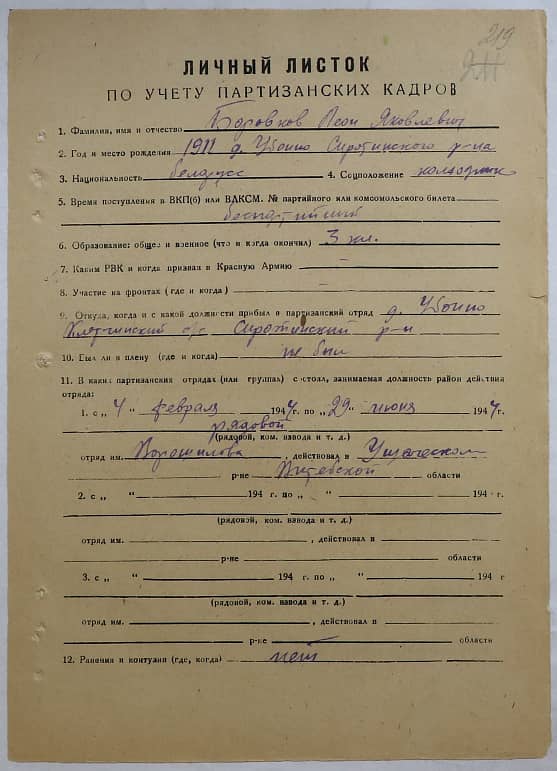 219
ЛИЧНЫЙ ЛИСТОК
ПО УЧЕТУ ПАРТИЗАНСКИХ КАДРОВ
1. Фамилия, имя и отчество Боровков Леон Яковлевич
2. Год и место рождения 1911 д. Убоино Сиротинского р-на
3. Национальность белорусс 4. Соцположение колхозник
5. Время поступления в ВКП(б) или ВЛКСМ. № партийного или комсомольского билета
беспартийный
6. Образование: общее и военное (что и когда окончил) 3 кл.
7. Каким РВК и когда призван в Красную Армию —
8. Участие на фронтах (где и когда) —
9. Откуда, когда и с какой должности прибыл в партизанский отряд д. Убоино
с/с Сиротинский р-н
10. Был ли в плену (где и когда) не был
11. В каких партизанских отрядах (или группах) состоял, занимаемая должность район действия
отряда:
1. с „ 4 “ февраля 1944 г. по „ 29 “ июня 1944 г.
рядовой
(рядовой, ком. взвода и т. д.)
отряд им. Ворошилова, действовал в Ушачском
р-не Витебской области
2. с „ “ 194 г. по „ “ 194 г.
(рядовой, ком. взвода и т. д.)
отряд им. , действовал в
р-не области
3. с „ “ 194 г. по „ “ 194 г
(рядовой, ком. взвода и т. д.)
отряд им. , действовал в
р-не области
12. Ранения и контузии (где, когда) нет